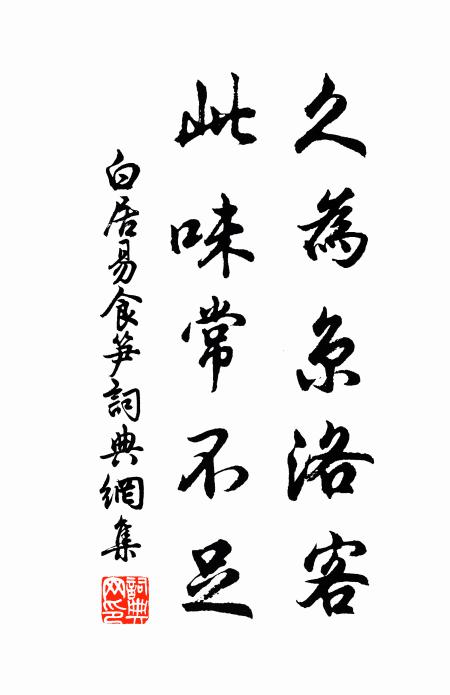 久為京洛客
此味常不足
白居易食筍詞典網集
詞典網印